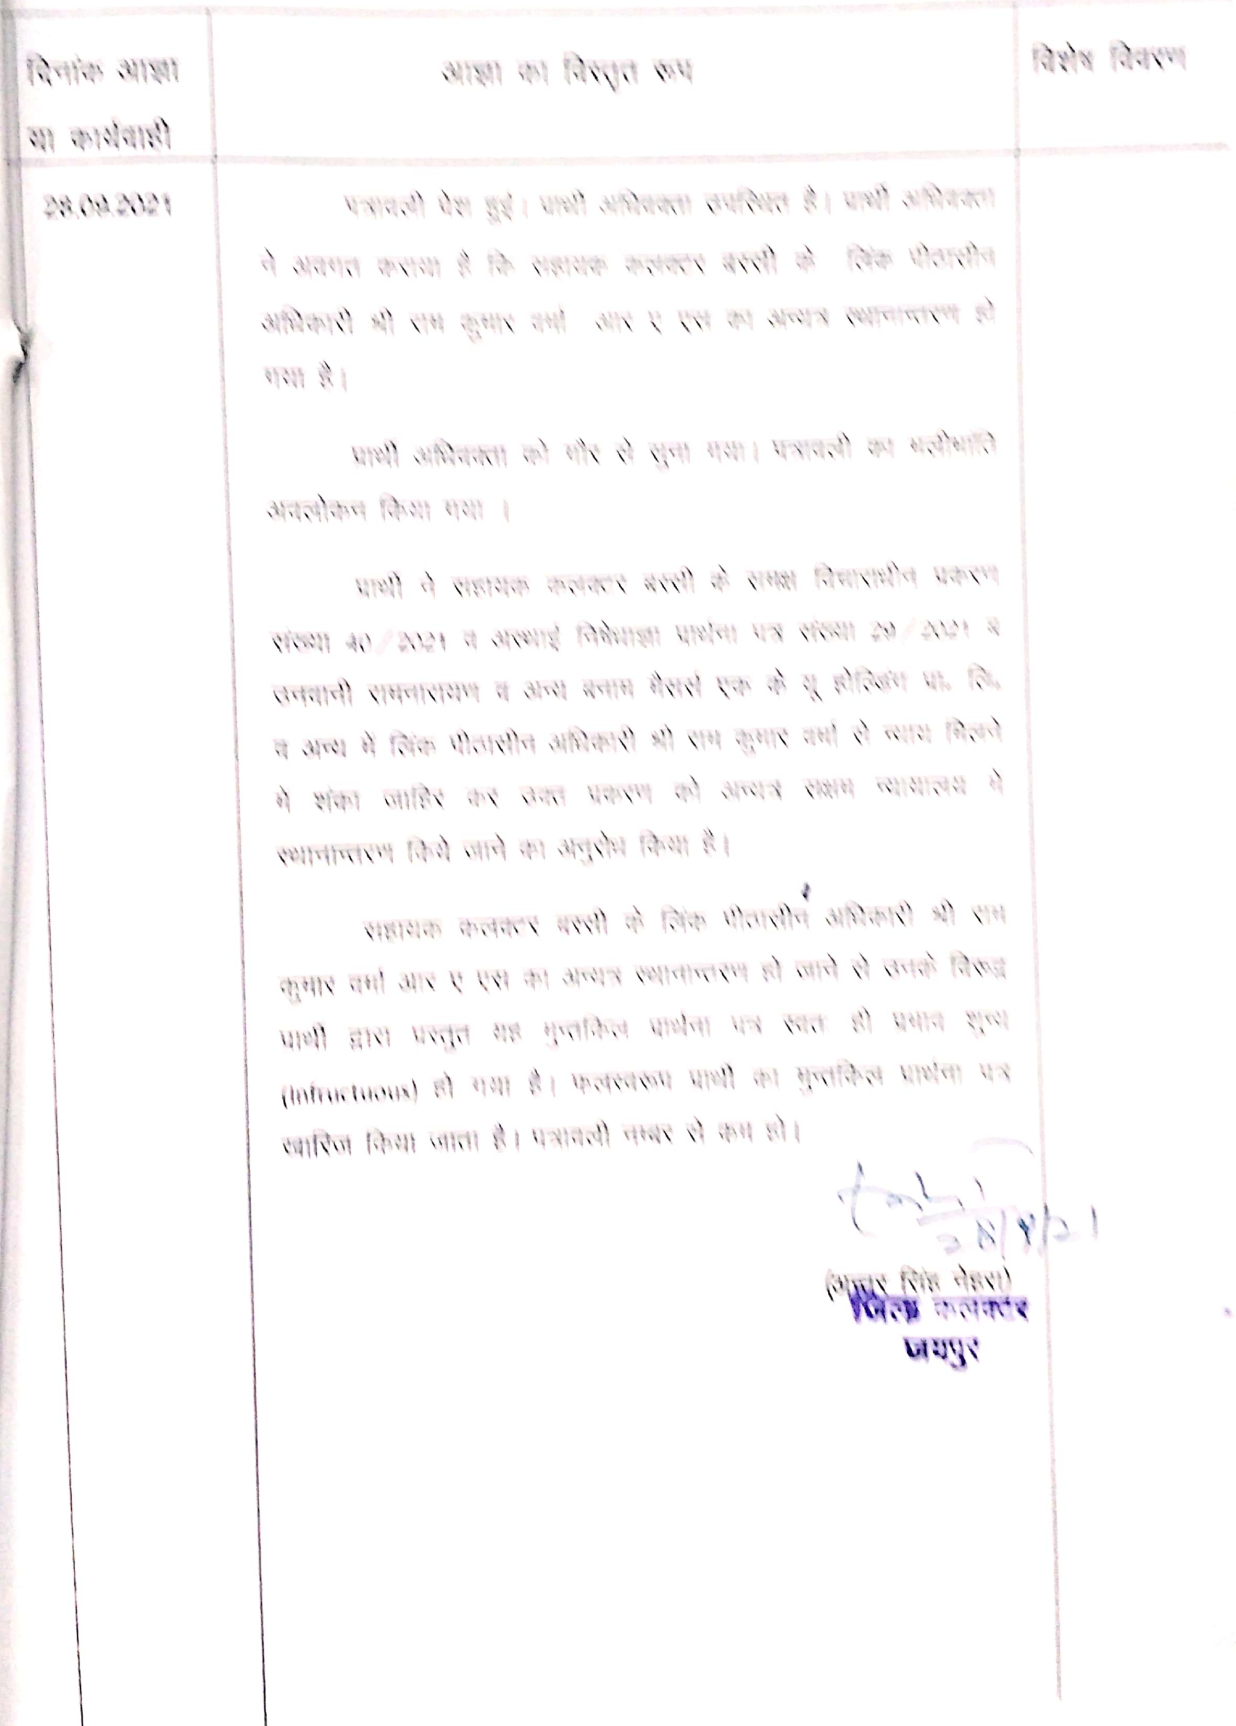 दिनांक आज्ञा
या कार्यवाही
आज्ञा का विस्तृत रूप
विशेष विवरण
28.09.2021
पत्रावली पेश हुई। प्रार्थी अधिवक्ता उपस्थित है। प्रार्थी अधिवक्ता
ने अवगत कराया है कि सहायक कलक्टर बस्सी के लिंक पीठासीन
अधिकारी श्री राम कुमार वर्मा आर ए एस का अन्यत्र स्थानान्तरण हो
गया है।
प्रार्थी अधिवक्ता को गौर से सुना गया। पत्रावली का भलीभांति
अवलोकन किया गया ।
प्रार्थी ने सहायक कलक्टर बस्सी के समक्ष विचाराधीन प्रकरण
संख्या 40/2021 व अस्थाई निषेधाज्ञा प्रार्थना पत्र संख्या 29/2021 ब
उनवानी रामनारायण व अन्य बनाम मैसर्स एक के यू होल्डिंग प्रा. लि.
व अन्य में लिंक पीठासीन अधिकारी श्री राम कुमार वर्मा से न्याय मिलने
में शंका जाहिर कर उक्त प्रकरण को अन्यत्र सक्षम न्यायालय में
स्थानान्तरण किये जाने का अनुरोध किया है।
सहायक कलक्टर बस्सी के लिंक पीठासीन अधिकारी श्री राम
कुमार वर्मा आर ए एस का अन्यत्र स्थानान्तरण हो जाने से उनके विरूद्ध
प्रार्थी द्वारा प्रस्तुत यह मुन्तकिल प्रार्थना पत्र स्वतः ही प्रभाव शून्य
(Infructuous) हो गया है। फलस्वरूप प्रार्थी का मुन्तकिल प्रार्थना पत्र
खारिज किया जाता है। पत्रावली नम्बर से कम हो।
28/9/21
(अन्तर सिंह नेहरा)
जिला कलक्टर
जयपुर